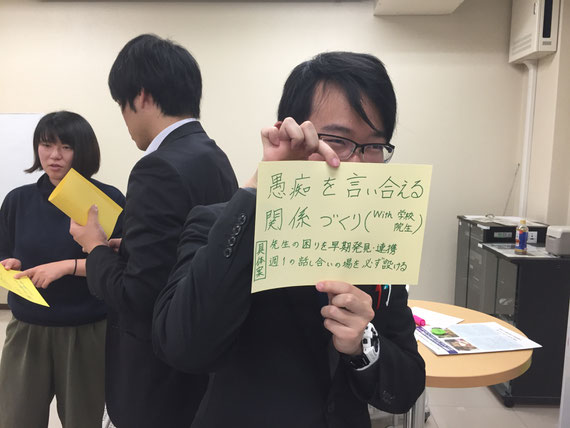 愚痴を言い合える
関係づくり(With 学校
院生)
具体案
先生の困りを早期発見・連携
週1の話し合いの場を必ず設ける